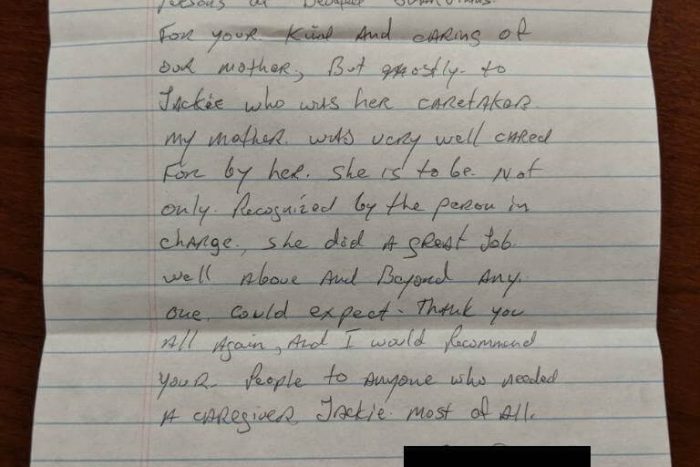 For your Kind And CARING of
our mother, But mostly to
Jackie who was her CARetAKeR.
my mother was very well CARed
For by her. She is to be Not
only Recognized by the person in
chARge, she did A gReAt Job
well Above And Beyond Any
one could expect. Thank you
All Again, And I would Recommend
youR People to Anyone who needed
A CARegiveR, Jackie most of All.